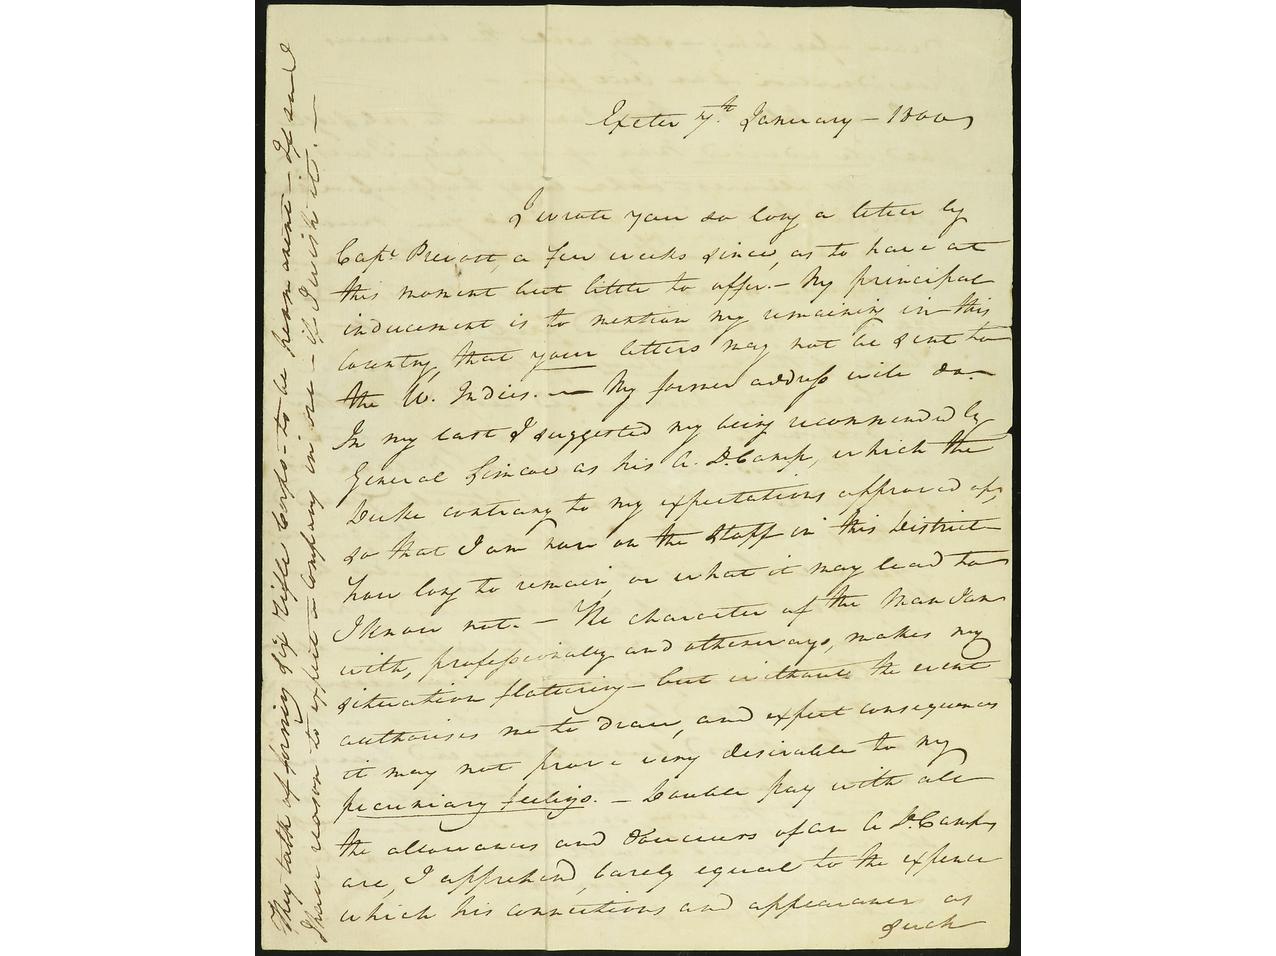 Exeter 7th January – 1800,
I wrote you so long a letter by
Capt. Prevost, a few weeks since, as to have at
this moment but little to offer. – My principal
inducement is to mention my remaining in this
Country, that your letters may not be sent to
the W. Indies. — My former address will do. –
In my last I suggested my being recommended by
General Simcoe as his A. D. Camp, which the
Duke contrary to my expectations approved of,
so that I am now on the Staff in this District
how long to remain, or what it may lead to
I know not. – The character of the Man I am
with, professionally and otherways, makes my
situation flattering – but without the event
authorises me to draw, and expect consequences
it may not prove very desirable to my
pecuniary feelings. – Double pay with all
the allowances and douceurs of an A D. Camp,
are, I apprehend, barely equal to the expence
which his connections and appearance as
such
They talk of forming six rifle Corps – to be permanent – Id said
I have reason to expect a Company in one – if I wish it. –